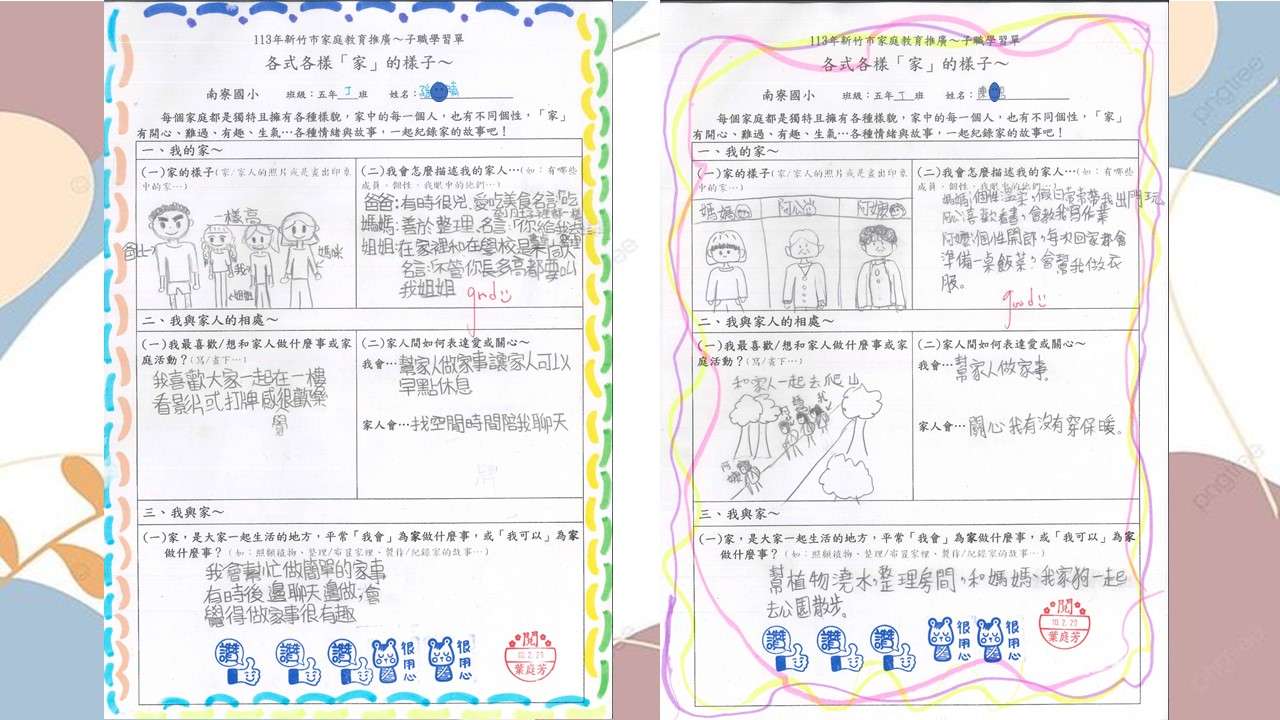 113年新竹市家庭教育推廣～子職學習單
各式各樣「家」的樣子～
南寮國小 班級：五年丁班 姓名：
每個家庭都是獨特且擁有各種樣貌，家中的每一個人，也有不同個性，「家」
有開心、難過、有趣、生氣…各種情緒與故事，一起紀錄家的故事吧！
一、我的家～
(一)家的樣子(家/家人的照片或是畫出印象
中的家…)
一樣高
爸比
我
小姐姐
媽咪
(二)我會怎麼描述我的家人…(如：有哪些
成員、個性、我眼中的他們…)
爸爸:有時很兇,愛吃美食名言:吃
媽媽:善於整理、名言:你給我去
姐姐:在家裡和在學校是
名言:不管你長多高都要叫
我姐姐
good
二、我與家人的相處～
(一)我最喜歡/想和家人做什麼事或家
庭活動？(寫/畫下…)
我喜歡大家一起在一樓
看影片或打牌感很歡樂
覺
(二)家人間如何表達愛或關心～
我會…幫家人做家事讓家人可以
早點休息
家人會…找空閒時間陪我聊天
三、我與家～
(一)家，是大家一起生活的地方，平常「我會」為家做什麼事，或「我可以」為家
做什麼事？(如：照顧植物、整理/布置家裡、製作/紀錄家的故事…)
我會幫忙做簡單的家事
有時後邊聊天邊做,會
覺得做家事很有趣
讚 讚 讚 很用心 很用心
閱
葉庭芳
113年新竹市家庭教育推廣～子職學習單
各式各樣「家」的樣子～
南寮國小 班級：五年丁班 姓名：
每個家庭都是獨特且擁有各種樣貌，家中的每一個人，也有不同個性，「家」
有開心、難過、有趣、生氣…各種情緒與故事，一起紀錄家的故事吧！
一、我的家～
(一)家的樣子(家/家人的照片或是畫出印象
中的家…)
媽媽 阿公 阿嬤
(二)我會怎麼描述我的家人…(如：有哪些
成員、個性、我眼中的他們…)
媽媽:個性溫柔,假日常常帶我出門玩
阿公:喜歡看書,會教我寫作業
阿嬤:個性開朗,每次回家都會
準備一桌飯菜,會幫我做衣
服。
good
二、我與家人的相處～
(一)我最喜歡/想和家人做什麼事或家
庭活動？(寫/畫下…)
和家人一起去爬山
我
(二)家人間如何表達愛或關心～
我會…幫家人做家事。
家人會…關心我有沒有穿保暖。
三、我與家～
(一)家，是大家一起生活的地方，平常「我會」為家做什麼事，或「我可以」為家
做什麼事？(如：照顧植物、整理/布置家裡、製作/紀錄家的故事…)
幫植物澆水,整理房間,和媽媽、我家狗一起
去公園散步。
讚 讚 讚 很用心 很用心
閱
葉庭芳
pngtree